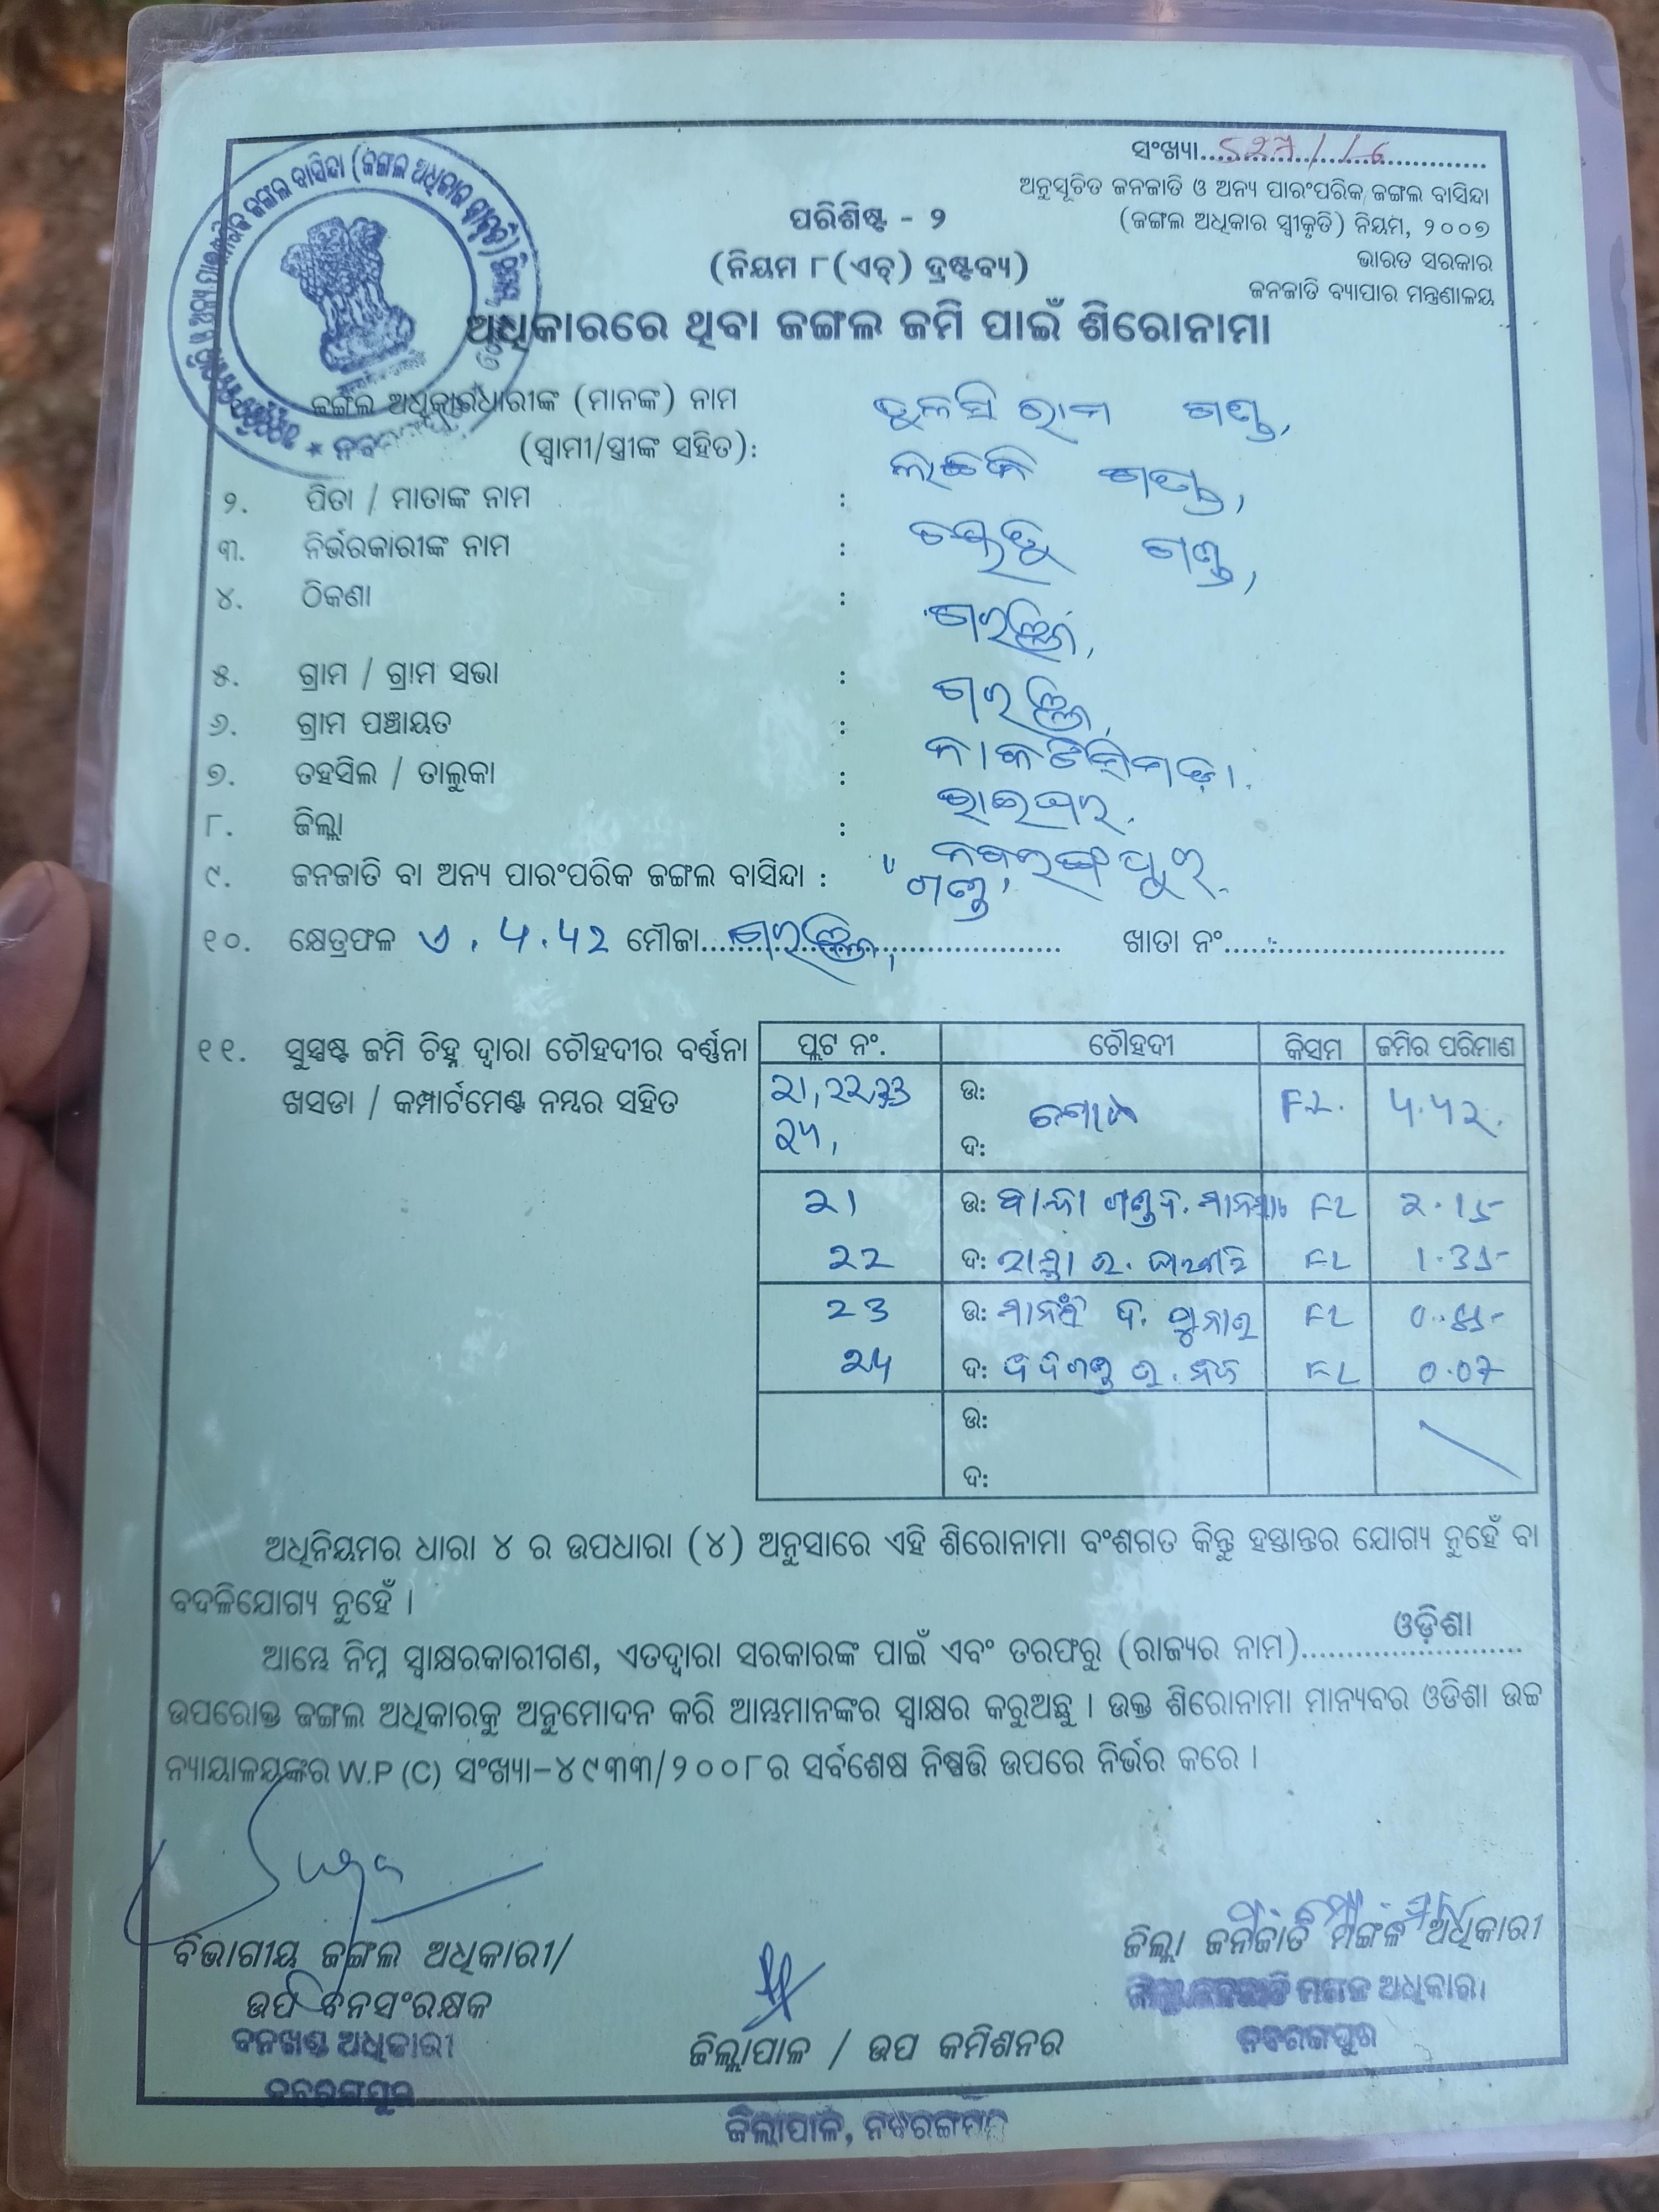 ସଂଖ୍ୟା..............................
ଅନୁସୂଚିତ ଜନଜାତି ଓ ଅନ୍ୟ ପାରଂପରିକ ଜଙ୍ଗଲ ବାସିନ୍ଦା
(ଜଙ୍ଗଲ ଅଧିକାର ସ୍ୱୀକୃତି) ନିୟମ, ୨୦୦୭
ଭାରତ ସରକାର
ଜନଜାତି ବ୍ୟାପାର ମନ୍ତ୍ରଣାଳୟ
ପରିଶିଷ୍ଟ - ୨
(ନିୟମ ୮(ଏଚ୍) ଦ୍ରଷ୍ଟବ୍ୟ)
ଅଧିକାରରେ ଥିବା ଜଙ୍ଗଲ ଜମି ପାଇଁ ଶିରୋନାମା
ଜଙ୍ଗଲ ଅଧିକାରଧାରୀଙ୍କ (ମାନଙ୍କ) ନାମ ତୁଳସି ରାମ ଗଣ୍ଡ,
(ସ୍ୱାମୀ/ସ୍ତ୍ରୀଙ୍କ ସହିତ):
୨. ପିତା / ମାତାଙ୍କ ନାମ : ଗଣ୍ଡ,
୩. ନିର୍ଭରକାରୀଙ୍କ ନାମ : ଗଣ୍ଡ,
୪. ଠିକଣା :
୫. ଗ୍ରାମ / ଗ୍ରାମ ସଭା :
୬. ଗ୍ରାମ ପଞ୍ଚାୟତ :
୭. ତହସିଲ / ତାଲୁକା : ରାଇଘର.
୮. ଜିଲ୍ଲା : ନବରଙ୍ଗପୁର.
୯. ଜନଜାତି ବା ଅନ୍ୟ ପାରଂପରିକ ଜଙ୍ଗଲ ବାସିନ୍ଦା : ଗଣ୍ଡ,
୧୦. କ୍ଷେତ୍ରଫଳ ଏ. ୪.୪୨ ମୌଜା.............................. ଖାତା ନଂ..............................
୧୧. ସୁସ୍ପଷ୍ଟ ଜମି ଚିହ୍ନ ଦ୍ୱାରା ଚୌହଦୀର ବର୍ଣ୍ଣନା
ଖସଡା / କମ୍ପାର୍ଟମେଣ୍ଟ ନମ୍ବର ସହିତ
ପ୍ଲଟ ନଂ. ଚୌହଦୀ କିସମ ଜମିର ପରିମାଣ
21, 22, 23 ଉ: F.L. ୪.୪୨.
24, ଦ:
21 ଉ: FL 2.15
22 ଦ: FL 1.35
23 ଉ: FL
24 ଦ: FL 0.07
ଉ:
ଦ:
ଅଧିନିୟମର ଧାରା ୪ ର ଉପଧାରା (୪) ଅନୁସାରେ ଏହି ଶିରୋନାମା ବଂଶଗତ କିନ୍ତୁ ହସ୍ତାନ୍ତର ଯୋଗ୍ୟ ନୁହେଁ ବା
ବଦଳିଯୋଗ୍ୟ ନୁହେଁ ।
ଆମ୍ଭେ ନିମ୍ନ ସ୍ୱାକ୍ଷରକାରୀଗଣ, ଏତଦ୍ୱାରା ସରକାରଙ୍କ ପାଇଁ ଏବଂ ତରଫରୁ (ରାଜ୍ୟର ନାମ)......ଓଡ଼ିଶା......
ଉପରୋକ୍ତ ଜଙ୍ଗଲ ଅଧିକାରକୁ ଅନୁମୋଦନ କରି ଆମ୍ଭମାନଙ୍କର ସ୍ୱାକ୍ଷର କରୁଅଛୁ । ଉକ୍ତ ଶିରୋନାମା ମାନ୍ୟବର ଓଡିଶା ଉଚ୍ଚ
ନ୍ୟାୟାଳୟଙ୍କର W.P (C) ସଂଖ୍ୟା-୪୯୩୩/୨୦୦୮ର ସର୍ବଶେଷ ନିଷ୍ପତ୍ତି ଉପରେ ନିର୍ଭର କରେ ।
ବିଭାଗୀୟ ଜଙ୍ଗଲ ଅଧିକାରୀ/
ଉପ ବନସଂରକ୍ଷକ
ବନଖଣ୍ଡ ଅଧିକାରୀ
ନବରଙ୍ଗପୁର
ଜିଲ୍ଲାପାଳ / ଉପ କମିଶନର
ଜିଲ୍ଲାପାଳ, ନବରଙ୍ଗପୁର
ଜିଲ୍ଲା ଜନଜାତି ମଙ୍ଗଳ ଅଧିକାରୀ
ଜିଲ୍ଲା ଜନଜାତି ମଙ୍ଗଳ ଅଧିକାରୀ
ନବରଙ୍ଗପୁର